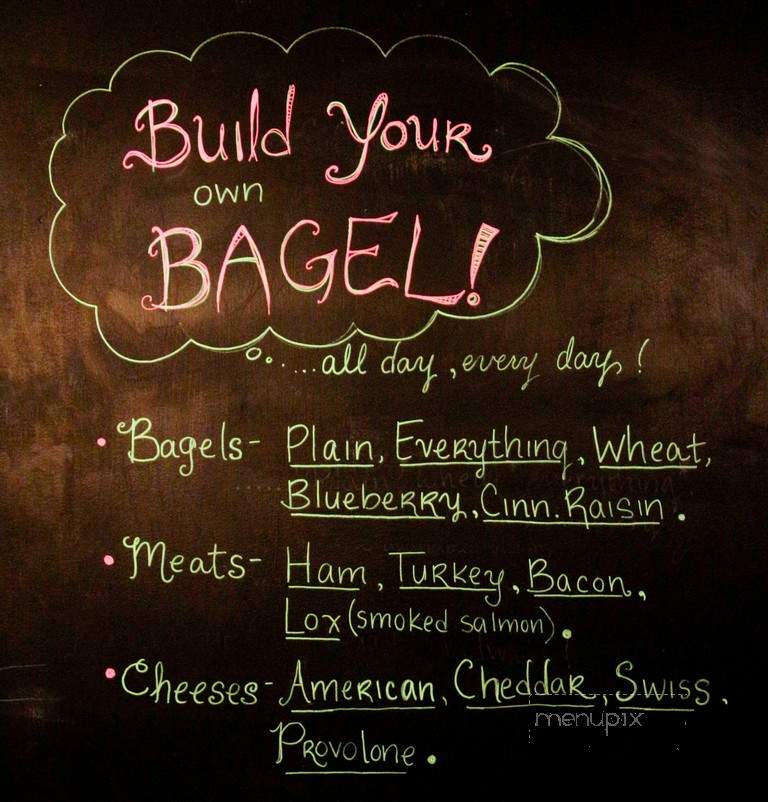 Build Your
own
BAGEL!
....all day, every day!
• Bagels- Plain, Everything, Wheat,
Blueberry, Cinn. Raisin.
• Meats- Ham, Turkey, Bacon,
Lox (smoked salmon).
• Cheeses- American, Cheddar, Swiss,
Provolone.
menupix